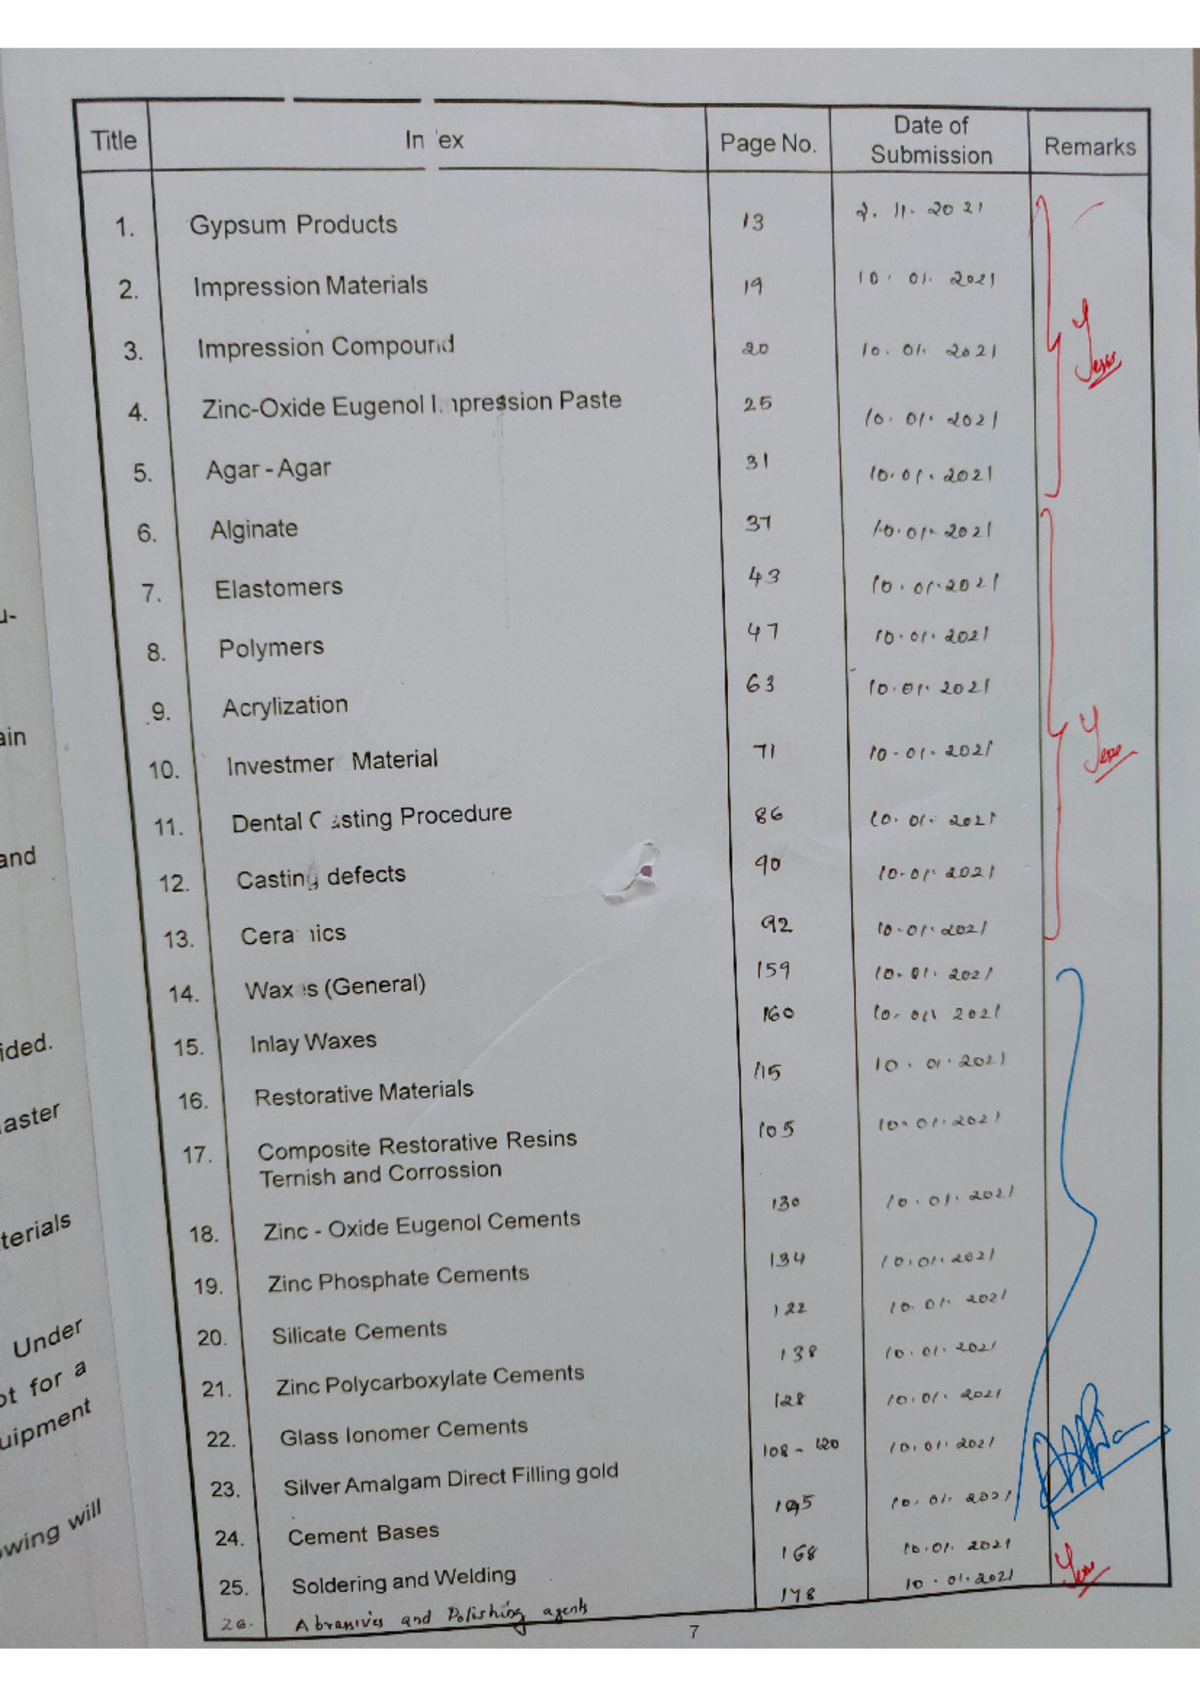 Title Index Page No. Date of Submission Remarks
1. Gypsum Products 13 2. 11. 2021
2. Impression Materials 19 10. 01. 2021
3. Impression Compound 20 10. 01. 2021
4. Zinc-Oxide Eugenol Impression Paste 25 10. 01. 2021
5. Agar - Agar 31 10. 01. 2021
6. Alginate 37 10. 01. 2021
7. Elastomers 43 10. 01. 2021
8. Polymers 47 10. 01. 2021
9. Acrylization 63 10. 01. 2021
10. Investment Material 71 10. 01. 2021
11. Dental Casting Procedure 86 10. 01. 2021
12. Casting defects 90 10. 01. 2021
13. Ceramics 92 10. 01. 2021
14. Waxes (General) 159 10. 01. 2021
15. Inlay Waxes 160 10. 01. 2021
16. Restorative Materials 115 10. 01. 2021
17. Composite Restorative Resins 105 10. 01. 2021
Ternish and Corrossion
18. Zinc - Oxide Eugenol Cements 130 10. 01. 2021
19. Zinc Phosphate Cements 134 10. 01. 2021
20. Silicate Cements 122 10. 01. 2021
21. Zinc Polycarboxylate Cements 138 10. 01. 2021
22. Glass Ionomer Cements 128 10. 01. 2021
23. Silver Amalgam Direct Filling gold 108 - 120 10. 01. 2021
24. Cement Bases 10. 01. 2021
25. Soldering and Welding 168 10. 01. 2021
26. Abrasives and Polishing agents 178 10. 01. 2021
7
ain
and
ided.
aster
terials
Under
ot for a
uipment
owing will